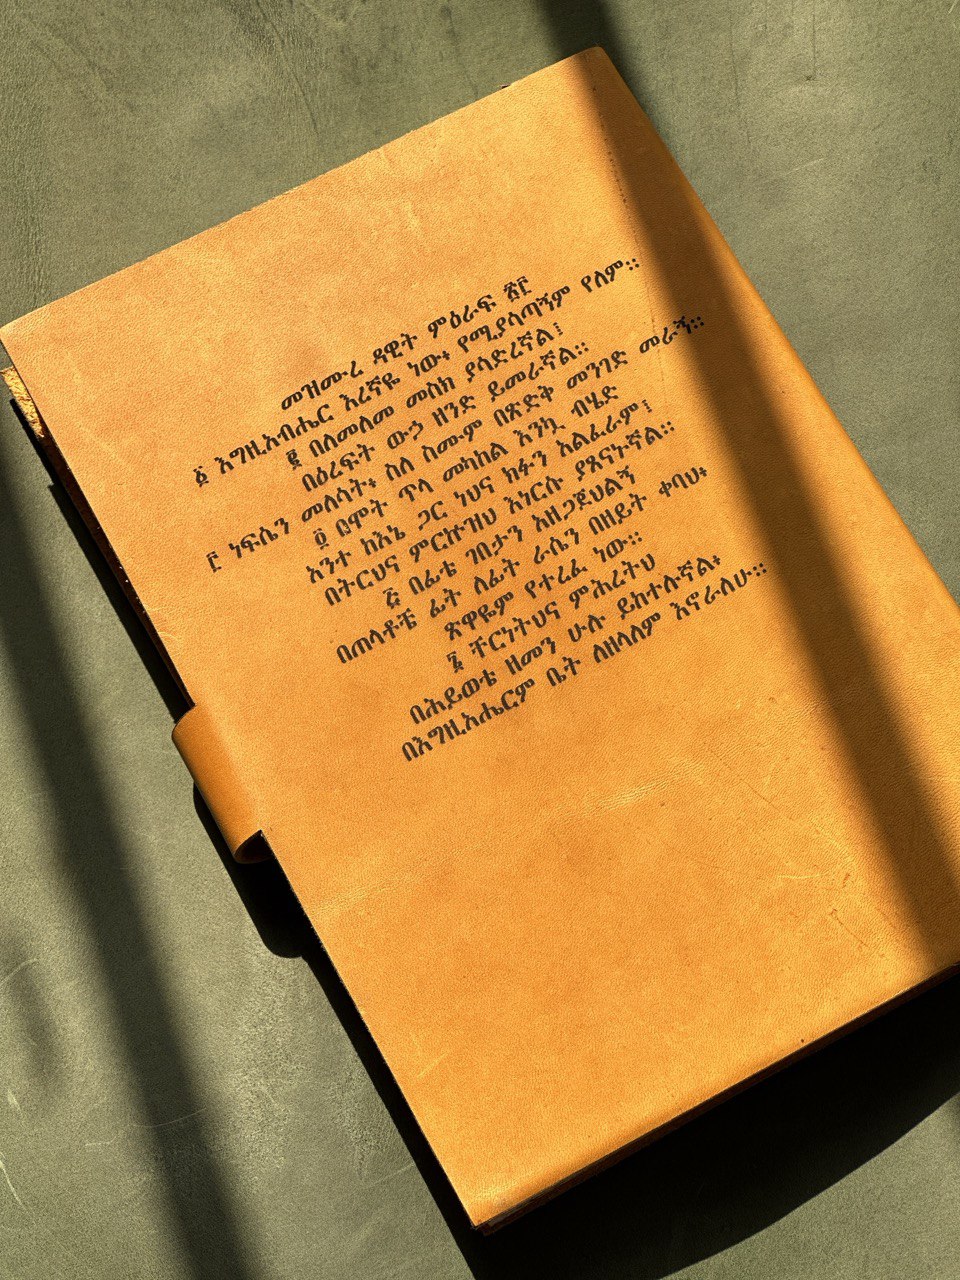 መዝሙረ ዳዊት ምዕራፍ ፳፫
፩ እግዚአብሔር እረኛዬ ነው፥ የሚያሳጣኝም የለም።
፪ በለመለመ መስክ ያሳድረኛል፤
በዕረፍት ውኃ ዘንድ ይመራኛል።
፫ ነፍሴን መለሳት፥ ስለ ስሙም በጽድቅ መንገድ መራኝ።
፬ በሞት ጥላ መካከል እንኳ ብሄድ
አንተ ከእኔ ጋር ነህና ክፉን አልፈራም፤
በትርህና ምርኵዝህ እነርሱ ያጸናኑኛል።
፭ በፊቴ ገበታን አዘጋጀህልኝ
በጠላቶቼ ፊት ለፊት ራሴን በዘይት ቀባህ፥
ጽዋዬም የተረፈ ነው።
፮ ቸርነትህና ምሕረትህ
በሕይወቴ ዘመን ሁሉ ይከተሉኛል፥
በእግዚአሔርም ቤት ለዘላለም እኖራለሁ።